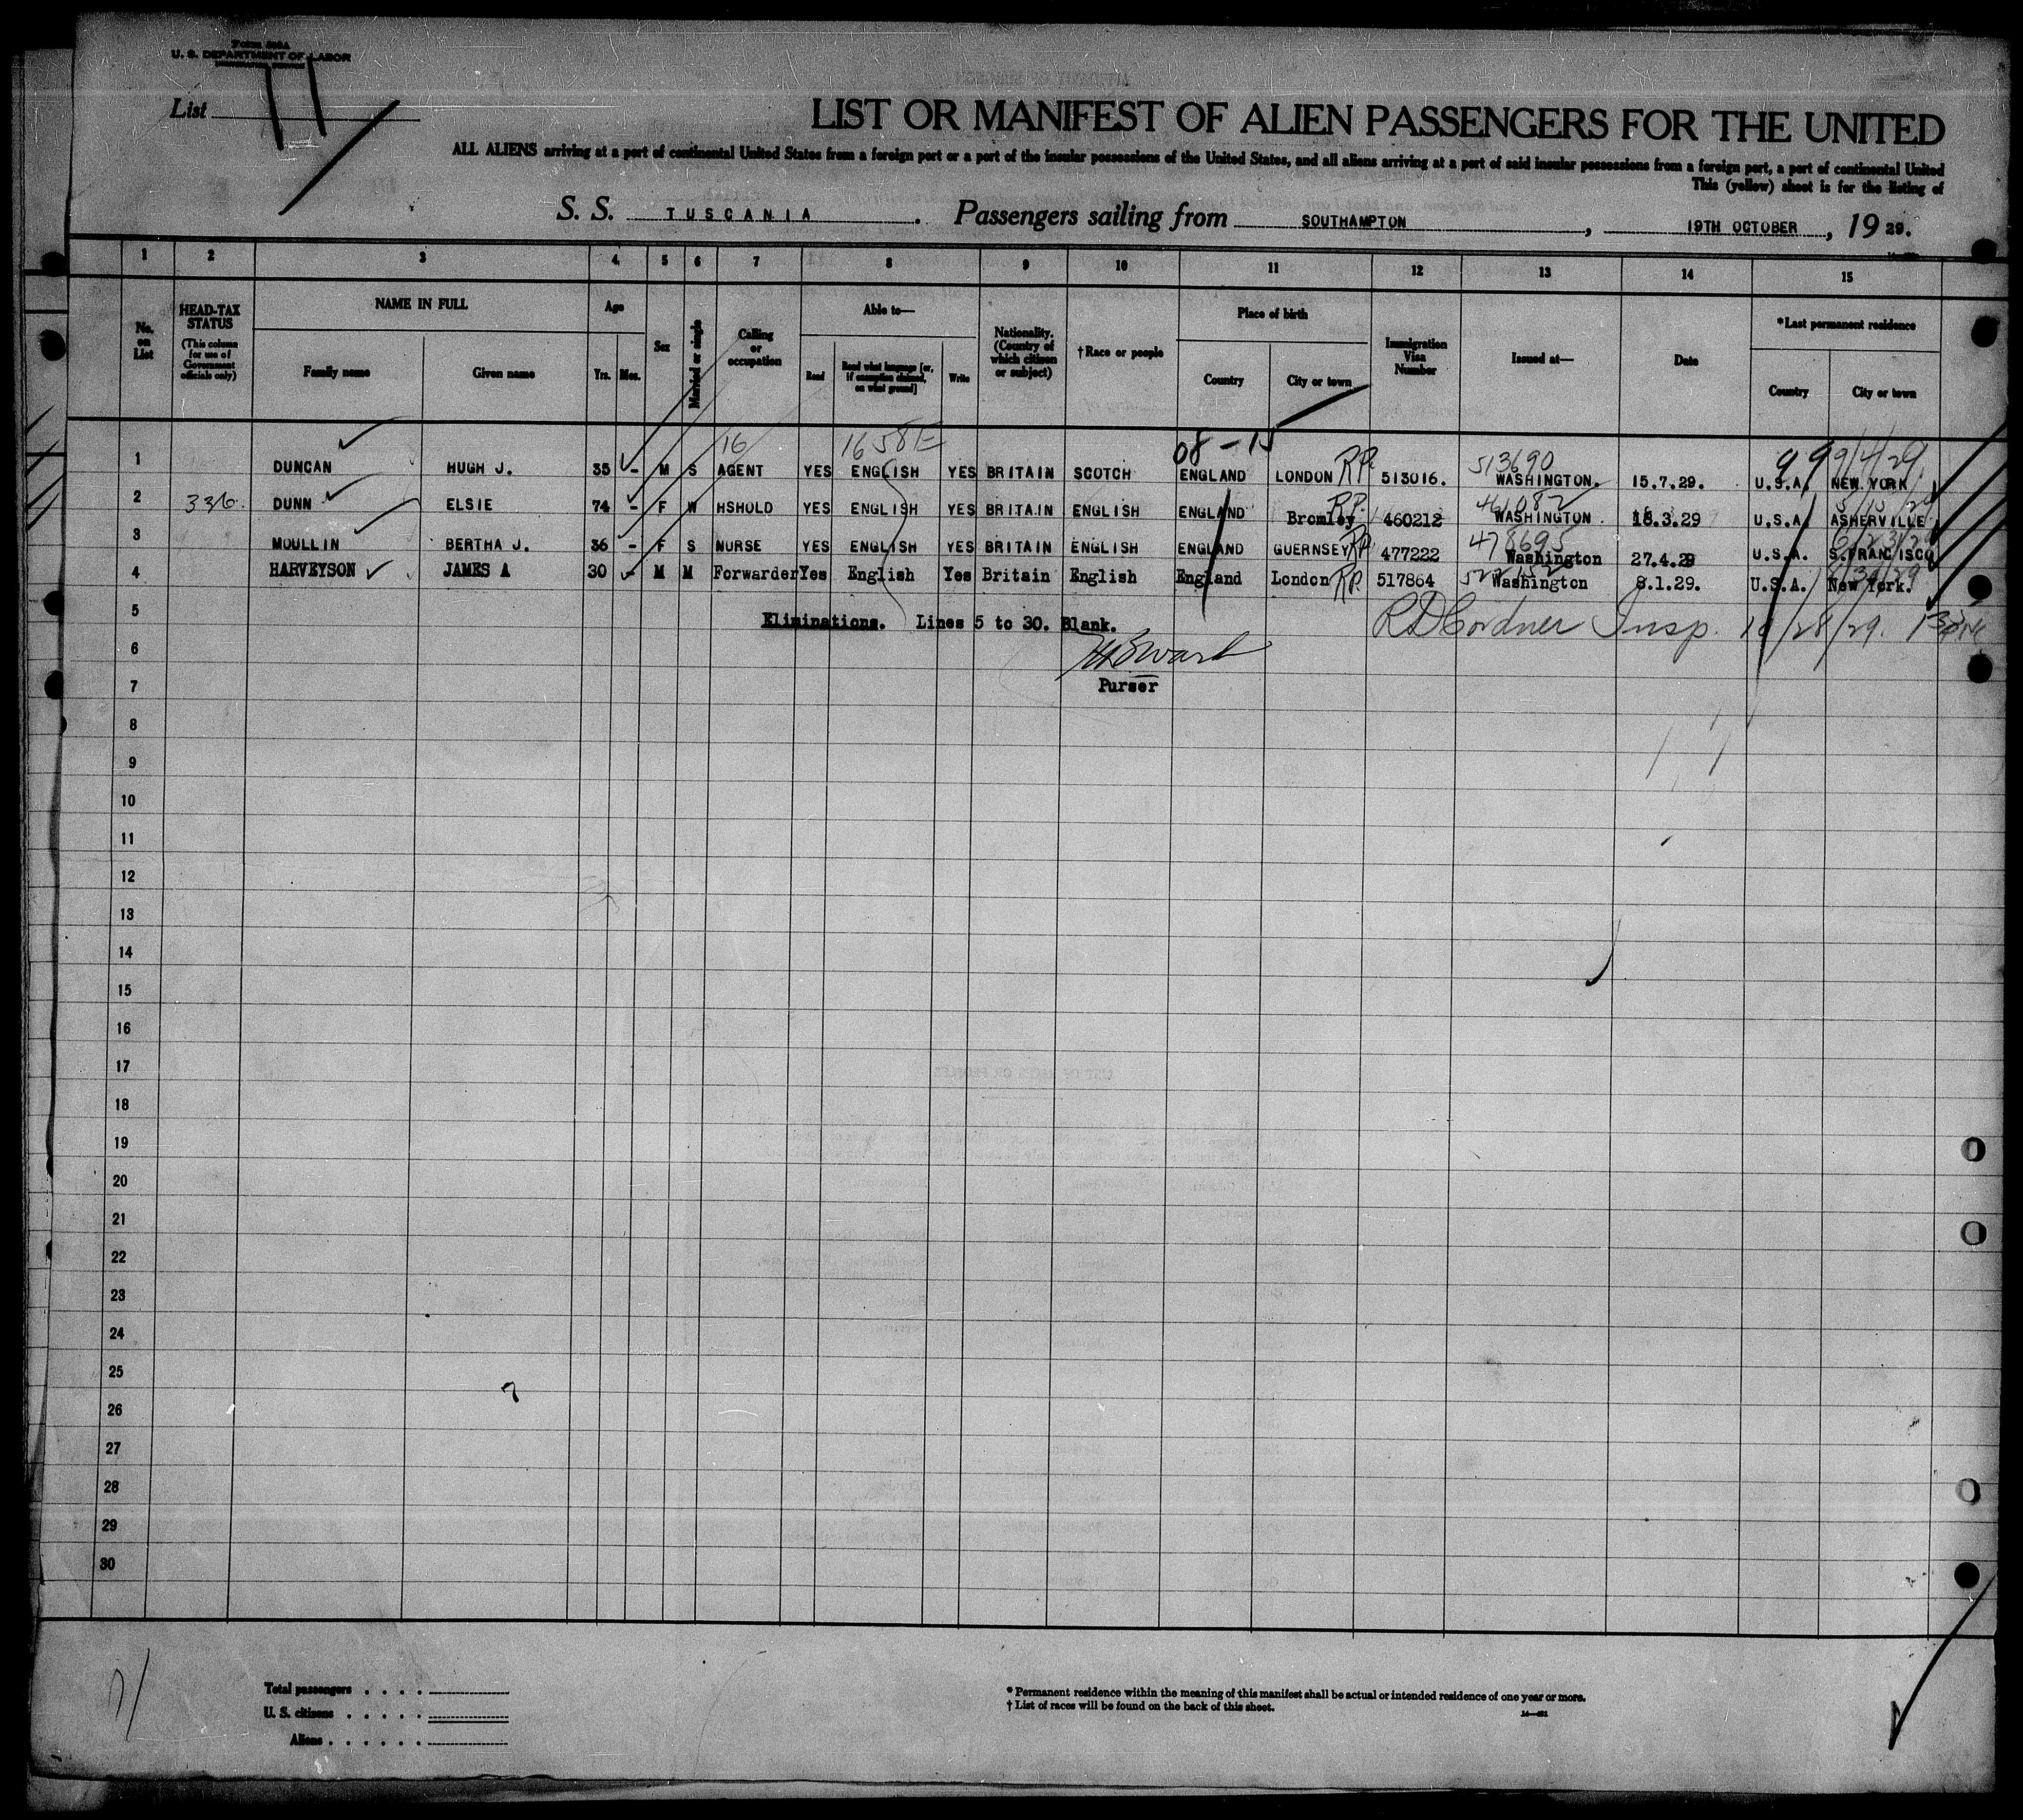 Form 500A
U. S. DEPARTMENT OF LABOR
List 11
LIST OR MANIFEST OF ALIEN PASSENGERS FOR THE UNITED
ALL ALIENS arriving at a port of continental United States from a foreign port or a port of the insular possessions of the United States, and all aliens arriving at a port of said insular possessions from a foreign port, a port of continental United
This (yellow) sheet is for the listing of
S. S. TUSCANIA . Passengers sailing from SOUTHAMPTON , 19TH OCTOBER , 19 29.
1 2 3 4 5 6 7 8 9 10 11 12 13 14 15
No. on List
HEAD-TAX STATUS (This column for use of Government officials only)
NAME IN FULL
Family name Given name
Age
Yrs. Mos.
Sex
Married or single
Calling or occupation
Able to—
Read Read what language [or, if exemption claimed, on what ground] Write
Nationality. (Country of which citizen or subject)
†Race or people
Place of birth
Country City or town
Immigration Visa Number
Issued at—
Date
*Last permanent residence
Country City or town
16 1658E 08-15 513690 99 9/4/29
1 DUNCAN HUGH J. 35 - M S AGENT YES ENGLISH YES BRITAIN SCOTCH ENGLAND LONDON RP. 513016. WASHINGTON. 15.7.29. U.S.A. NEW YORK
461082
2 336. DUNN ELSIE 74 - F W HSHOLD YES ENGLISH YES BRITAIN ENGLISH ENGLAND Bromley R.P. 460212 WASHINGTON 18.3.29 U.S.A. ASHERVILLE
478695
3 MOULLIN BERTHA J. 36 - F S NURSE YES ENGLISH YES BRITAIN ENGLISH ENGLAND GUERNSEY RP. 477222 Washington 27.4.29 U.S.A. S.FRANCISCO
4 HARVEYSON JAMES A 30 - M M Forwarder Yes English Yes Britain English England London R.P. 517864 Washington 8.1.29. U.S.A. New York.
5 Eliminations. Lines 5 to 30. Blank. R D Cordner Insp. 10/28/29.
6
7 Purser
8
9
10
11
12
13
14
15
16
17
18
19
20
21
22
23
24
25
26
27
28
29
30
Total passengers . . . .
U. S. citizens . . . . .
Aliens . . . . . .
* Permanent residence within the meaning of this manifest shall be actual or intended residence of one year or more.
† List of races will be found on the back of this sheet.